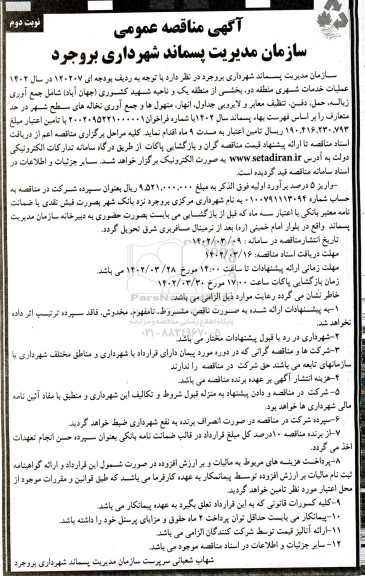 نوبت دوم
آگهی مناقصه عمومی
سازمان مدیریت پسماند شهرداری بروجرد
سازمان مدیریت پسماند شهرداری بروجرد در نظر دارد با توجه به ردیف بودجه ای ۱۲۰۲۰۷ در سال ۱۴۰۲
عملیات خدمات شهری منطقه دو، بخشی از منطقه یک و ناحیه شهید کشوری (جهان آباد) شامل جمع آوری
زباله، حمل، دفن، تنظیف معابر و لایروبی جداول، انهار، منهول ها و جمع آوری نخاله های سطح شهر در حد
متعارف را بر اساس فهرست بهاء پسماند سال ۱۴۰۲با شماره فراخوان ۲۰۰۲۰۹۵۲۲۱۰۰۰۰۰۱ با تامین اعتبار مبلغ
۱۹۰.۴۱۶.۲۳۰.۷۹۳ ریال تامین اعتبار به مدت ۹ ماه اقدام نماید. کلیه مراحل برگزاری مناقصه اعم از دریافت
اسناد مناقصه تا ارائه پیشنهاد قیمت مناقصه گران و بازگشایی پاکات از طریق درگاه سامانه تدارکات الکترونیکی
دولت به آدرس www.setadiran.ir به صورت الکترونیک برگزار خواهد شد. سایر جزئیات و اطلاعات در
اسناد سامانه مناقصه قید گردیده است.
-واریز ۵ درصد برآورد اولیه فوق الذکر به مبلغ ۹.۵۲۱.۰۰۰.۰۰۰ ریال بعنوان سپرده شرکت در مناقصه به
حساب شماره ۰۱۰۰۷۹۱۱۱۳۰۹۴ به نام شهرداری مرکزی بروجرد نزد بانک شهر بصورت فیش نقدی یا ضمانت
نامه معتبر بانکی با اعتبار سه ماه که قبل از بازگشایی می بایست بصورت حضوری به دبیرخانه سازمان مدیریت
پسماند واقع در بلوار امام خمینی (ره) بعد از ترمینال مسافربری شرق تحویل گردد.
تاریخ انتشارمناقصه در سامانه : ۱۴۰۲/۰۳/۰۹
مهلت دریافت اسناد مناقصه: ۱۴۰۲/۰۳/۱۶
مهلت زمانی ارائه پیشنهادات تا ساعت ۱۴:۰۰ مورخ ۱۴۰۲/۰۳/۲۸ می باشد.
زمان بازگشایی پاکات ساعت ۱۷:۰۰ مورخ ۱۴۰۲/۰۳/۳۰
خاطر نشان می گردد رعایت موارد ذیل الزامی می باشد.
۱-به پیشنهادات ارائه شده به صورت ناقص، مشروط، نامفهوم، مخدوش، فاقد سپرده ترتیب اثر داده
نخواهد شد.
۲-شهرداری در رد یا قبول پیشنهادات مختار می باشد.
۳-شرکت ها و مناقصه گرانی که در دوره مورد پیمان دارای قرارداد با شهرداری و مناطق مختلف شهرداری یا
سازمانهای تابعه می باشند حق شرکت در مناقصه را ندارند
۴-هزینه انتشار آگهی بر عهده برنده مناقصه می باشد.
۵-شرکت در مناقصه و دادن پیشنهاد به منزله قبول شروط و تکالیف این شهرداری و منطبق با مفاد آئین نامه
مالی شهرداری ها خواهد بود.
۶-سپرده شرکت در مناقصه در صورت انصراف برنده به نفع شهرداری ضبط خواهد گردید.
۷-از برنده مناقصه ۱۰درصد کل مبلغ قرارداد در قالب ضمانت نامه بانکی بعنوان سپرده حسن انجام تعهدات
اخذ می گردد.
۸-پرداخت هزینه های مربوط به مالیات و بر ارزش افزوده در صورت شمول این قرارداد و ارائه گواهینامه
ثبت نام مالیات بر ارزش افزوده توسط پیمانکار به عهده کارفرما می باشند که طبق قوانین و مقررات موجود از
محل اعتبار مورد نظر تامین خواهد گردید.
۹-کلیه کسورات قانونی که به این قرارداد تعلق بگیرد به عهده پیمانکار می باشد.
۱۰-پیمانکار می بایست حداقل توان پرداخت ۲ ماه حقوق و مزایای پرسنل خود را داشته باشد.
۱۱-ارائه آنالیز قیمت توسط شرکت کنندگان الزامی می باشد.
۱۲-سایر جزئیات و اطلاعات در اسناد مناقصه موجود می باشد.
شهاب شعبانی سرپرست سازمان مدیریت پسماند شهرداری بروجرد